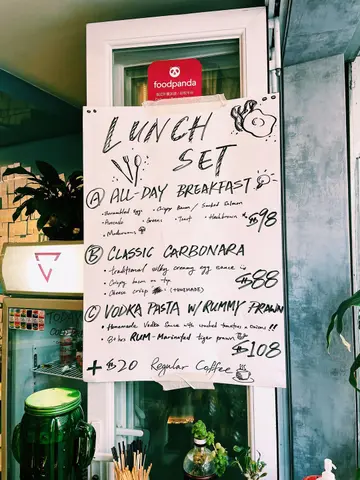 foodpanda
LUNCH
SET
A ALL-DAY BREAKFAST
• Scrambled egg • Crispy Bacon / Smoked Salmon
• Avocado • Greens • Toast • Hashbrown $98
• Mushrooms
B CLASSIC CARBONARA
• traditional silky creamy egg sauce
• Crispy bacon on top $88
• Cheese crisp (HOMEMADE)
C VODKA PASTA W/ RUMMY PRAWN
• Homemade Vodka Sauce with crushed tomatoes & Onions !!
RUM-Marinated tiger prawn $108
+ $20 Regular Coffee